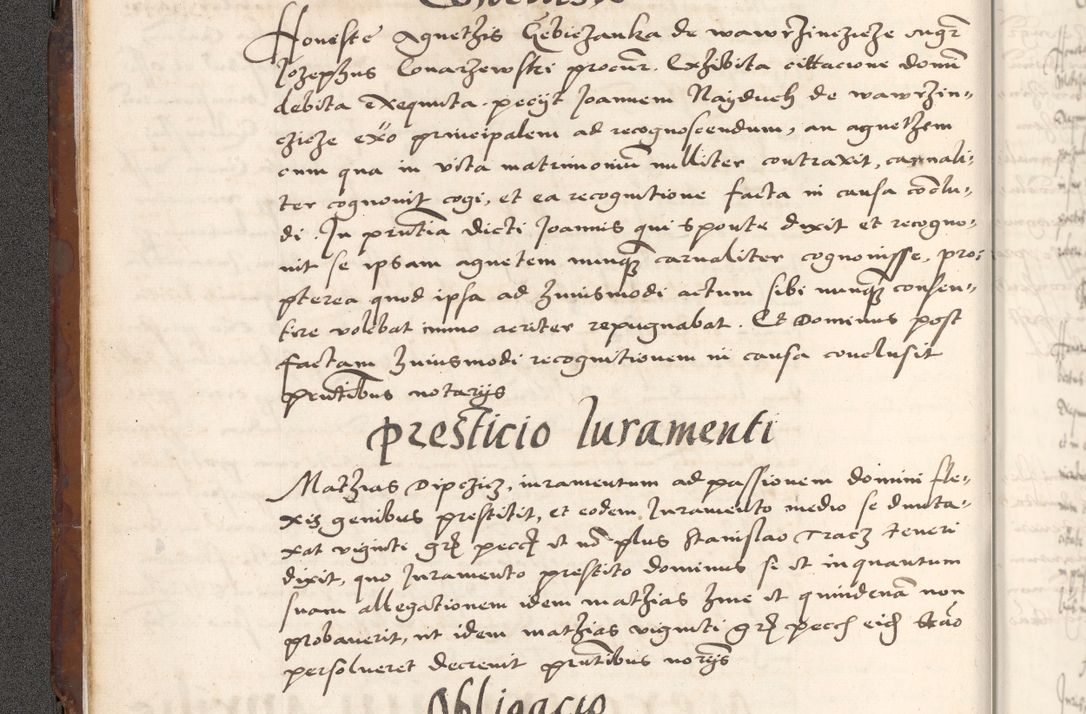 Honeste Agnethis Gebiezanka de wawrzinczicze mgr
Jozephus Conarzewski procur. Exhibita cittacione domi
debita exequuta. pecijt Joannem Nayduch de wawrzin-
czicze exo principalem ad recognoscendum, an agnethem
cum qua in vita matrimonium nulliter contraxit, carnali-
ter cognouit cogi, et ea recognitione facta in causa conclu-
di. In pruntia dicti Joannis qui sponte dixit et recogno-
uit se ipsam agnetem nunquam carnaliter cognouisse, pro-
pterea quod ipsa ad huiusmodi actum sibi nunquam consen-
tire volebat immo acriter repugnabat. Et Dominus post
factam huiusmodi recognitionem in causa conclusit
pruntibus notarijs
presticio Iuramenti
Mathias Dipczicz, iuramentum ad passionem domini fle-
xis genibus prestitit, et eodem Iuramento medio se dunta-
xat viginti grs pecc et no plus Stanislao Tracz teneri
dixit, quo Iuramento prestito dominus si et inquantum
suam allegationem idem mathias hinc et quindenam non
probauerit, ut idem mathias viginti grs pecc eid Stao
persolueret decreuit pruntibus norijs
Obligacio